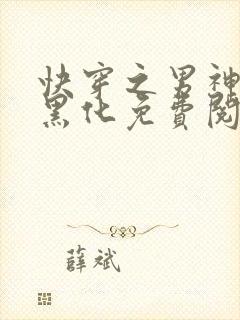 快穿之男神
黑化免費閱
薛斌